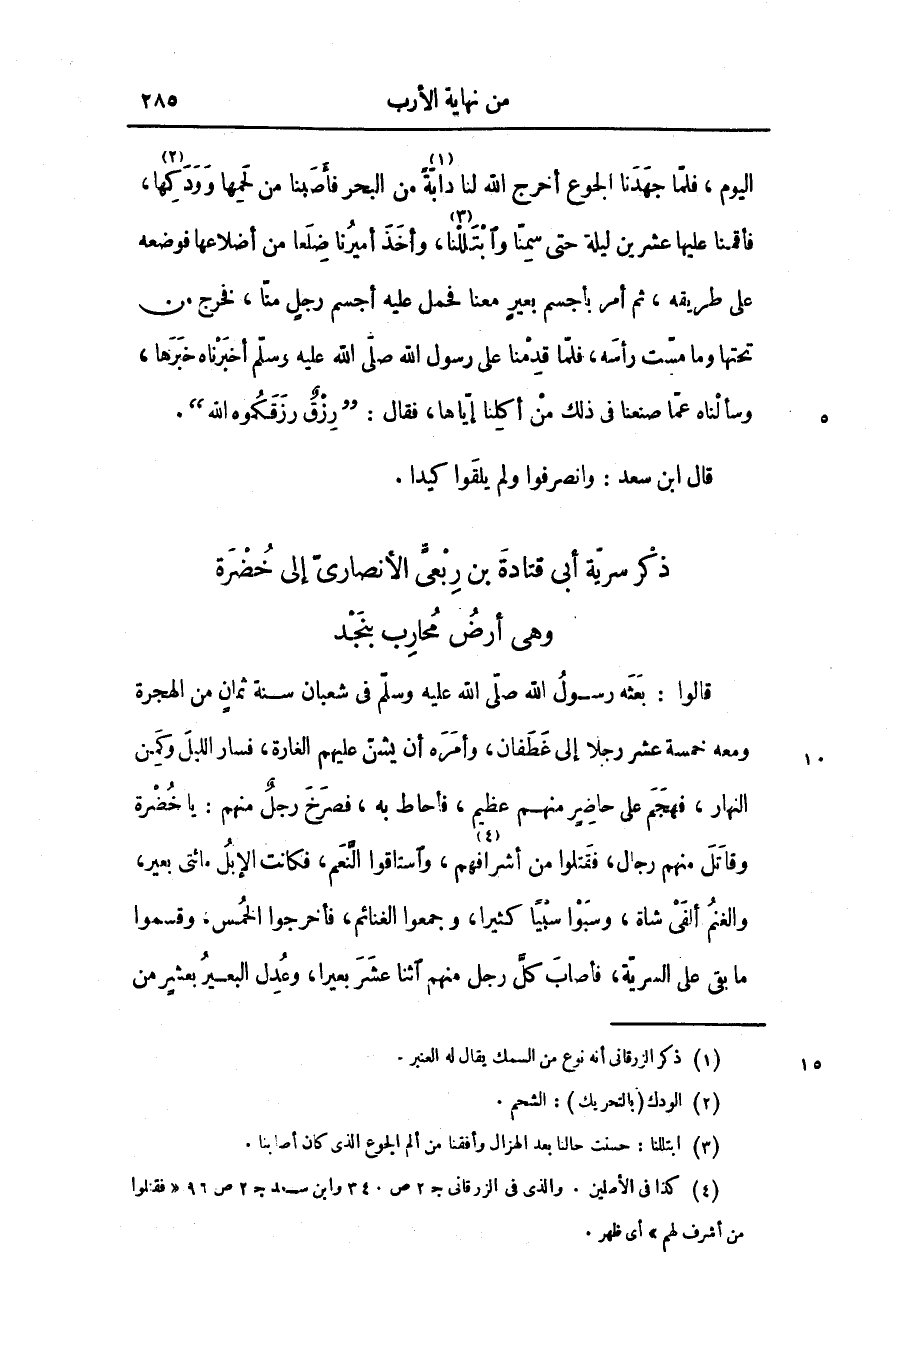 من نهاية الأرب ٢٨٥
اليوم ، فلمّا جهَدَنا الجوع أخرج الله لنا دابّةً (١) من البحر فأَصَبنا من لَحمِها وَوَدَكِها (٢) ،
فأقمنا عليها عشرين ليلة حتى سمِنّا وٱبْتَلَلْنا (٣) ، وأخَذَ أميرُنا ضِلَعا من أضلاعها فوضعه
على طريقه ، ثم أمر بأجسم بعيرٍ معنا فحمل عليه أجسم رجلٍ منّا ، فخرج من
تحتها وما مسّت رأسَه ، فلمّا قدِمْنا على رسول الله صلّى الله عليه وسلّم أخبَرْناه خبَرَها ،
وسألْناه عمّا صنعنا فى ذلك مِنْ أكلِنا إيّاها ، فقال : ”رِزْقٌ رزَقَكُموه الله“ . ٥
قال ابن سعد : وانصرفوا ولم يلقَوا كيدا .
ذكْر سريّة أبى قتادةَ بن رِبْعىٍّ الأنصارىّ إلى خُضْرَة
وهى أرضُ مُحارِب بنَجْد
قالوا : بَعَثه رسولُ الله صلّى الله عليه وسلّم فى شعبان سنة ثمانٍ من الهجرة
ومعه خمسة عشر رجلا إلى غَطَفان ، وأمَرَه أن يشنّ عليهم الغارة ، فسار الليلَ وكَمِن ١٠
النهار ، فهجَمَ على حاضِرٍ منهم عظيمٍ ، فأحاط به ، فصرَخَ رجلٌ منهم : يا خُضْرة
وقاتَلَ منهم رجال ، فقَتلوا من أشرافهم (٤) ، وٱستاقوا النَّعَم ، فكانت الإبلُ مائتى بعير ،
والغنُم ألفَىْ شاة ، وسبَوْا سبْيًا كثيرا ، وجمعوا الغنائم ، فأخرجوا الخمُس ، وقسموا
ما بقى على السريّة ، فأصابَ كلَّ رجل منهم ٱثنا عشَرَ بعيرا ، وعُدِل البعيرُ بعشرٍ من
(١) ذكر الزرقانى أنه نوع من السمك يقال له العنبر . ١٥
(٢) الودك (بالتحريك) : الشحم .
(٣) ابتللنا : حسنت حالنا بعد الهزال وأفقنا من ألم الجوع الذى كان أصابنا .
(٤) كذا فى الأصلين . والذى فى الزرقانى جـ ٢ ص ٣٤٠ وابن سعد جـ ٢ ص ٩٦ « فقتلوا
من أشرف لهم » أى ظهر .